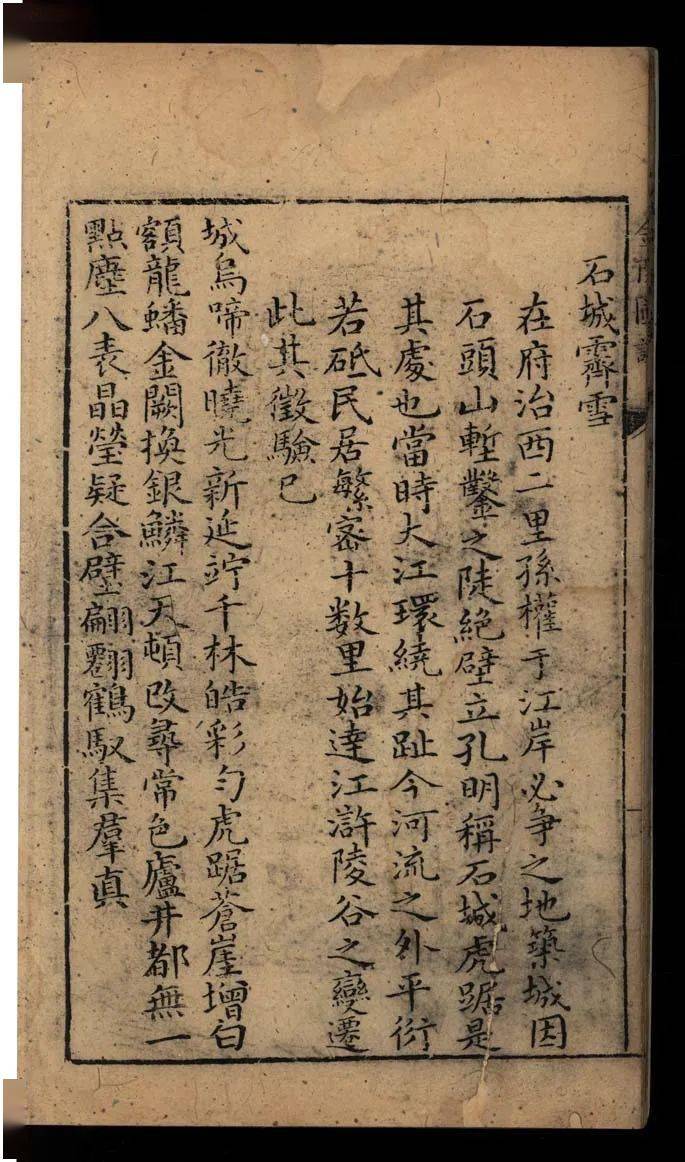 石城霽雪
在府治西二里孫權于江岸必爭之地築城因
石頭山塹鑿之陡絶壁立孔明稱石城虎踞是
其處也當時大江環繞其趾今河流之外平衍
若砥民居繁密十数里始達江滸陵谷之變遷
此其徵驗已
城烏啼徹曉光新延竚千林皓彩勻虎踞蒼崖增白
額龍蟠金闕換銀鱗江天頓改尋常色廬井都無一
點塵八表晶瑩疑合壁翩翻鶴馭集羣真